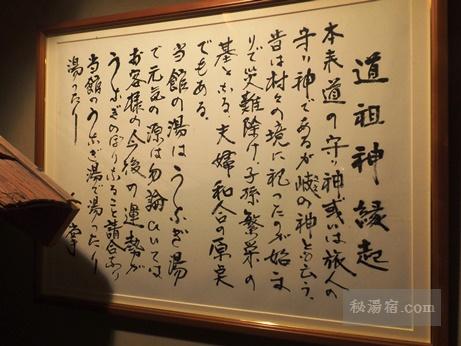 道祖神縁起
本来道の守り神或いは旅人の
守り神であるが岐の神とも云う、
昔は村々の境に祀ったのが始ま
りで災難除け、子孫繁栄の
基となる、夫婦和合の原点
でもある。
当館の湯はうなぎ湯
で元気の源は勿論ひいては
お客様の今後の運勢が
うなぎのぼりになること請合あり
当館のうなぎ湯で湯ったり
湯ったり
秘湯宿.com